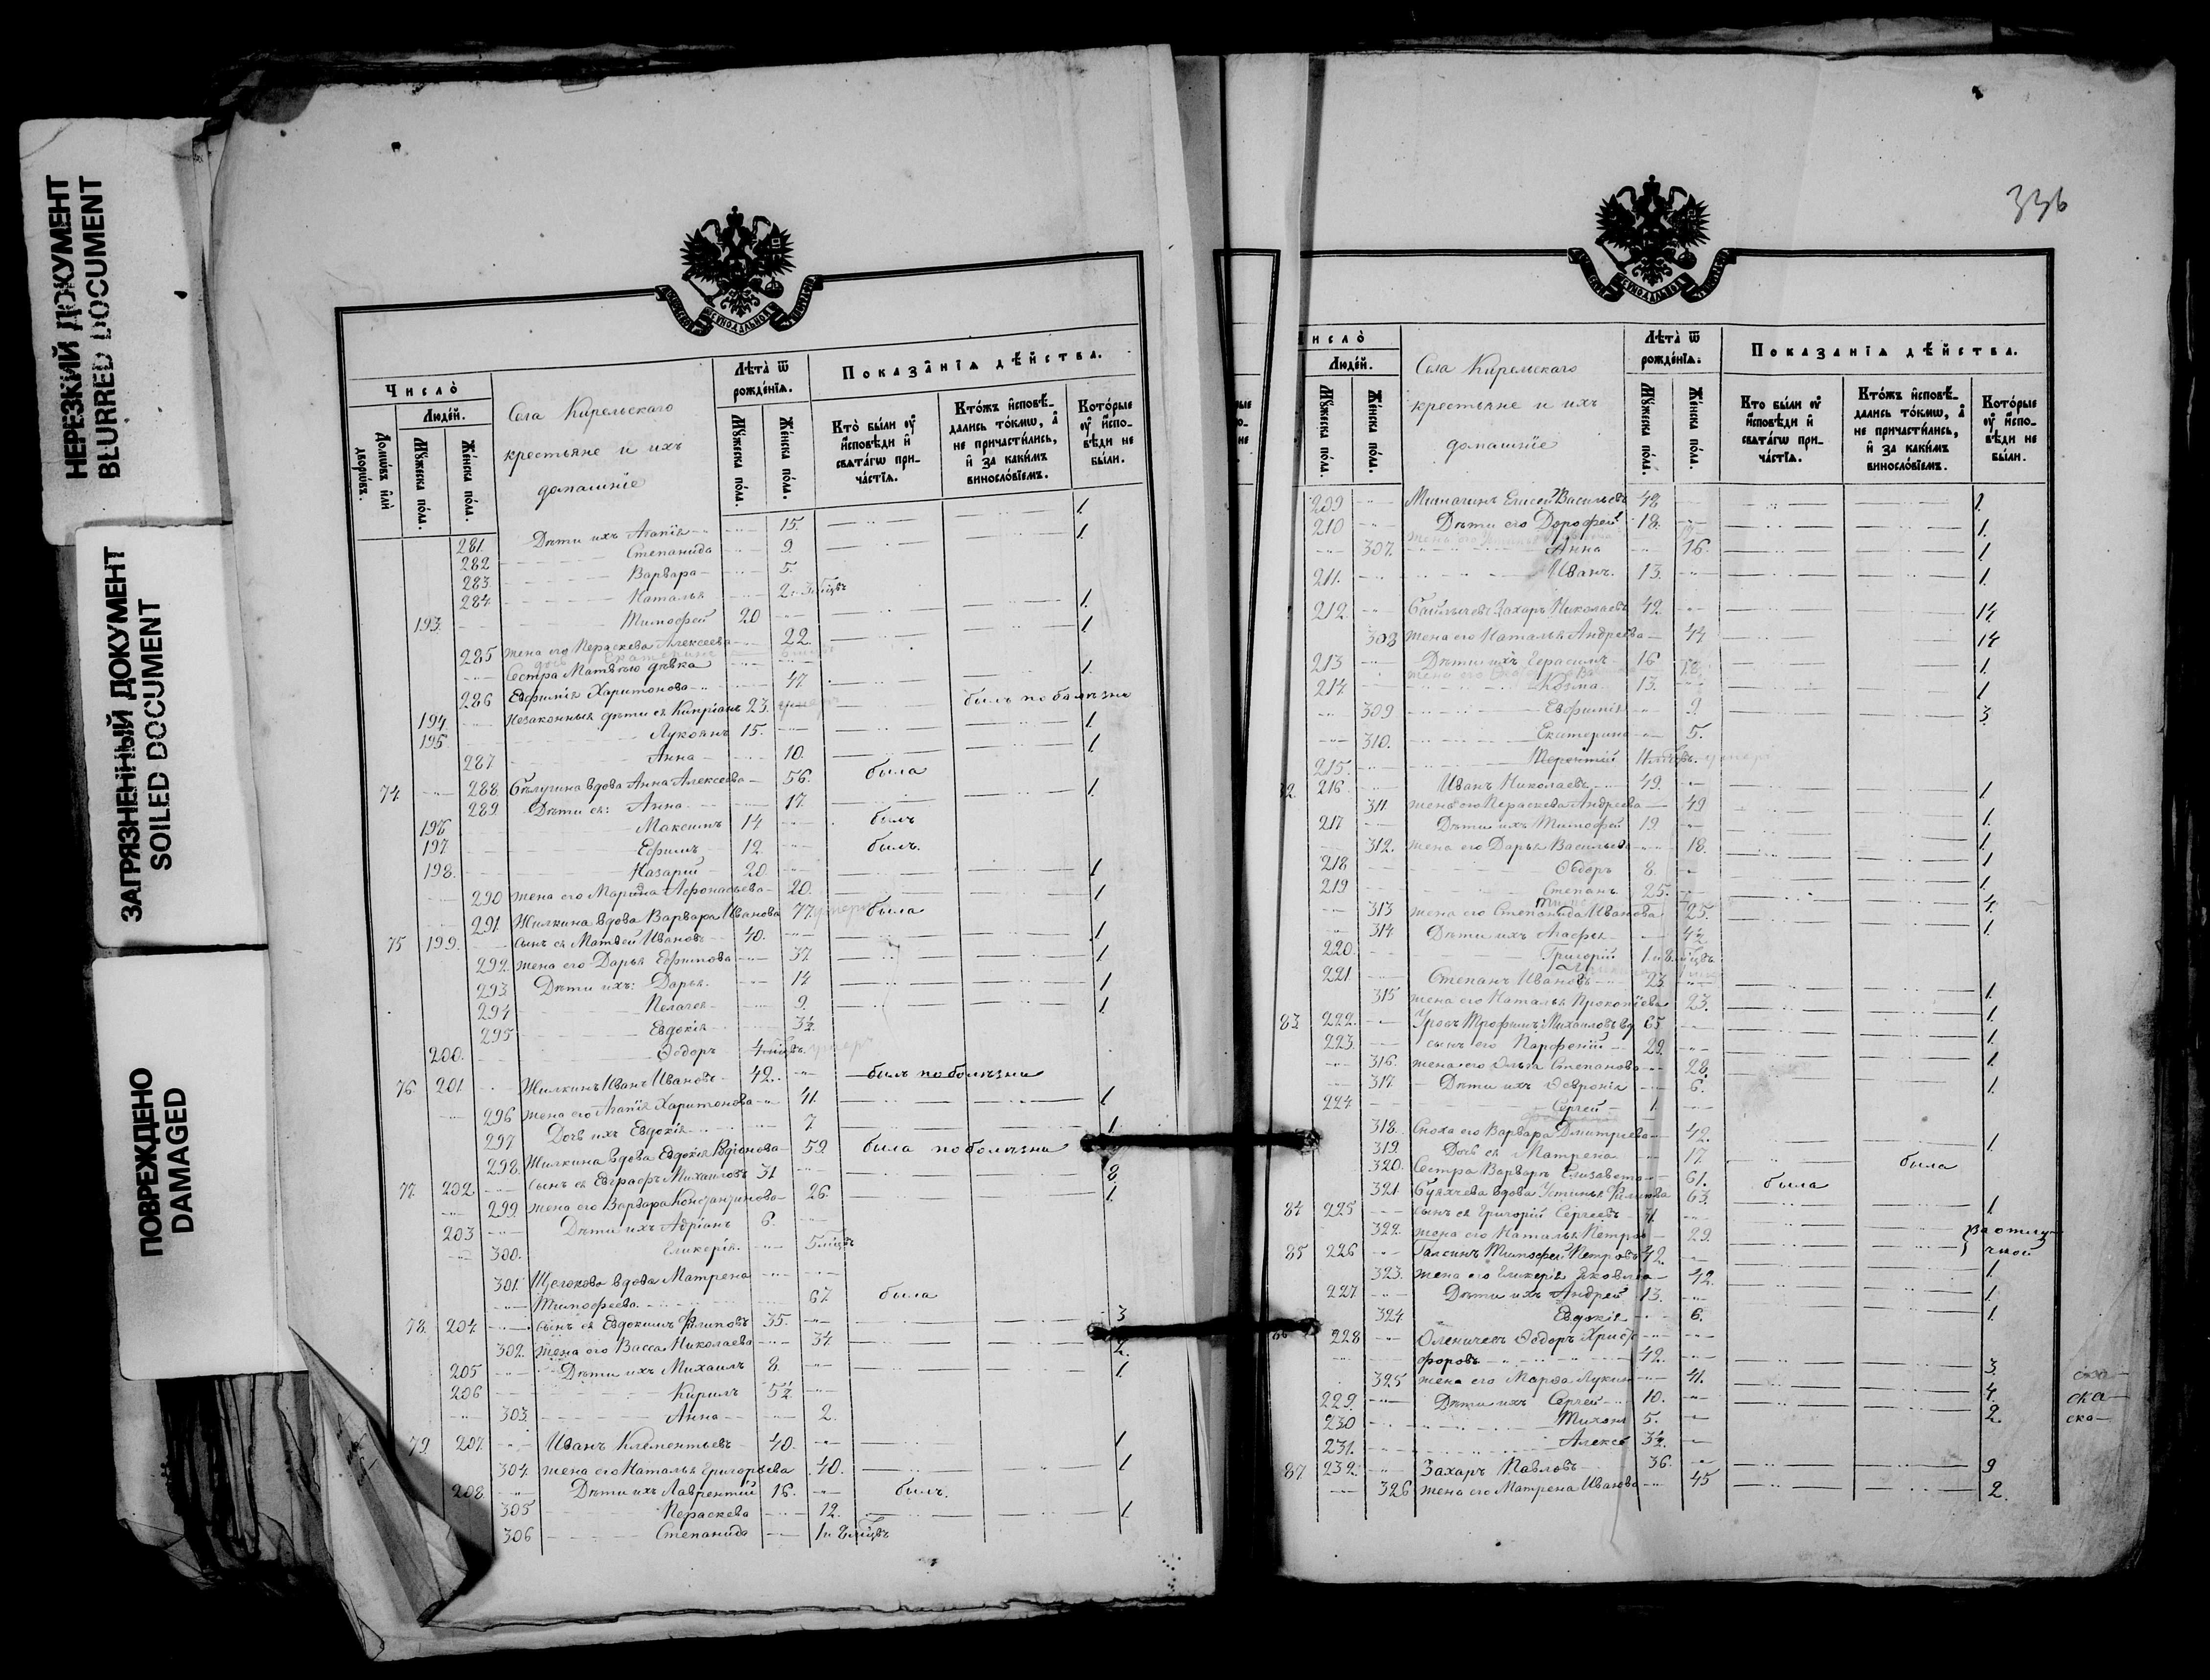 НЕРЕЗКИЙ ДОКУМЕНТ
BLURRED DOCUMENT
ЗАГРЯЗНЕННЫЙ ДОКУМЕНТ
SOILED DOCUMENT
ПОВРЕЖДЕНО
DAMAGED
Число̀
Людéй.
Домѡвъ ѝлѝ дворѡвъ.
Мꙋ́жеска пóла.
Жéнска пóла.
Села Кирельскаго
крестьяне и ихъ
домашніе
Лѣта̀ ѿ рождéнїѧ.
Мꙋ́жеска пóла.
Жéнска пóла.
Показáнїѧ дѣ́йства.
Кто̀ были ᲂу҆ и҆сповѣди и҆ свѧтáгѡ причáстїѧ.
Ктóжъ и҆сповѣ́дались тóкмѡ, а҆ не причасти́лись, и҆ за каки́мъ винослóвїемъ.
Котóрые ᲂу҆ и҆сповѣди не бы́ли.
281. Дѣти ихъ Агапія 15. 1.
282 Степанида 9. 1.
283 Варвара 5.
284 Наталья 2 и 3 мѣсц.
193. Тимофей 20 1.
285 жена его Пераскева Алексеева 22. 1.
Сестра Матвѣю дѣвка
286 Евфимія Харитонова 47 1.
194. Незаконныя дѣти ея Кипріанъ 23. былъ по болѣзни
195. Лукоянъ 15. 1.
287. Анна 10. 1.
74. 288. Бѣлугина вдова Анна Алексеева 56. была
289. Дѣти ея: Анна 17. 1.
196 Максимъ 14 былъ
197 Ефимъ 12. былъ.
198. Назарій 20. 1.
290 жена его Марина Афонасьева 20. 1.
291. Жилкина вдова Варвара Иванова 77. умерла была
75 199. сынъ ея Матвей Ивановъ 40. 1.
292. жена его Дарья Ефимова 37. 1.
293. Дѣти ихъ: Дарья 14 1.
294 Пелагея 9. 1.
295 Евдокія 3½.
200. Ѳедоръ 4 мѣсцъ. умеръ
76. 201. Жилкинъ Иванъ Ивановъ 42. былъ по болѣзни
296 жена его Агапія Харитонова 41. 1.
297. Дочь ихъ Евдокія 7. 1.
298. Жилкина вдова Евдокія 59. была по болѣзни
77. 202 сынъ ея Евграфъ Михаиловъ 31 2.
299. жена его Варвара Константинова 26. 1.
203 Дѣти ихъ Адріанъ 6.
300. Гликерія 5 мѣсцъ
301. Щелокова вдова Матрена
Тимофеева 67 была
78. 204. сынъ ея Евдокимъ Филиповъ 35. 3
302. жена его Васса Николаева 34. 2.
205 Дѣти ихъ Михаилъ 8. 1.
206 Кирилъ 5½.
303. Анна 2.
79. 207. Иванъ Климентьевъ 40. 1
304. жена его Наталья Григорьева 40. 1
208. Дѣти ихъ Лаврентій 16. былъ.
305 Пераскева 12. 1.
306 Степанида 1 и 8 мѣсцъ
336
Людéй.
Мꙋ́жеска пóла.
Жéнска пóла.
Села Кирельскаго
крестьяне и ихъ
домашніе
Лѣта̀ ѿ рождéнїѧ.
Мꙋ́жеска пóла.
Жéнска пóла.
Показáнїѧ дѣ́йства.
Кто были ᲂу҆ и҆сповѣди и҆ свѧтáгѡ причáстїѧ.
Ктóжъ и҆сповѣ́дались тóкмѡ, а҆ не причасти́лись, и҆ за каки́мъ винослóвїемъ.
Котóрые ᲂу҆ и҆сповѣди не бы́ли.
209 Елисей Васильевъ 48 1.
210 Дѣти его Дорофей 18. 1.
307. Анна 16. 1
211. Иванъ. 13. 1
212. Захаръ Николаевъ 42. 14
308 жена его Наталья Андреева 44 14
213 Дѣти ихъ Герасимъ 16 1.
214 Козма 13. 1
309 Евфимія 9. 3
310. Екатерина 5.
215. Терентій умеръ
82. 216. Иванъ Николаевъ 49. 1
311 жена его Пераскева Андреева 49 1.
217 Дѣти ихъ Тимофей 19. 1.
312. жена его Дарья Васильева 18. 1
218 Ѳедоръ 8. 1.
219 Степанъ 25. 4.
313 жена его Степанида Иванова 25. 1.
314 Дѣти ихъ Агафья 4½
220. Григорій 1 и 8 мѣсцъ.
221. Степанъ Ивановъ 23 1
315 жена его Наталья Прокопіева 23. 1.
83. 222. Трофимъ Михаиловъ вд. 65 1.
223. сынъ его Парфеній 29. 1.
316. жена его Ольга Степанова 28. 1.
317 Дѣти ихъ Ѳевронія 6.
224 Сергей 1.
318. Сноха его Варвара Дмитріева 42. 1.
319. Дочь ея Матрена 17. была
320. Сестра Варвары Елизавета 61. была
321. вдова Устинья Филипова 63. 1
84 225 сынъ ея Григорій Сергеевъ
322. жена его Наталья Петрова 29. въ отлучкой
85 226 Галкинъ Тимофей Петровъ 42. 1
323. жена его Гликерія Яковлева 42. 1.
227. Дѣти ихъ Андрей 13. 1.
324 Евдокія 6.
86 228 Оленичевъ Ѳедоръ Христофоровъ 42. 3. ска
325 жена его Марфа Лукина 41. 4. ска
229. Дѣти ихъ Сергей 10. 2. ска
230 Тихонъ 5.
231. Алексѣ 3½.
87 232. Захаръ Павловъ 36. 9
326 жена его Матрена Иванова 45 2.